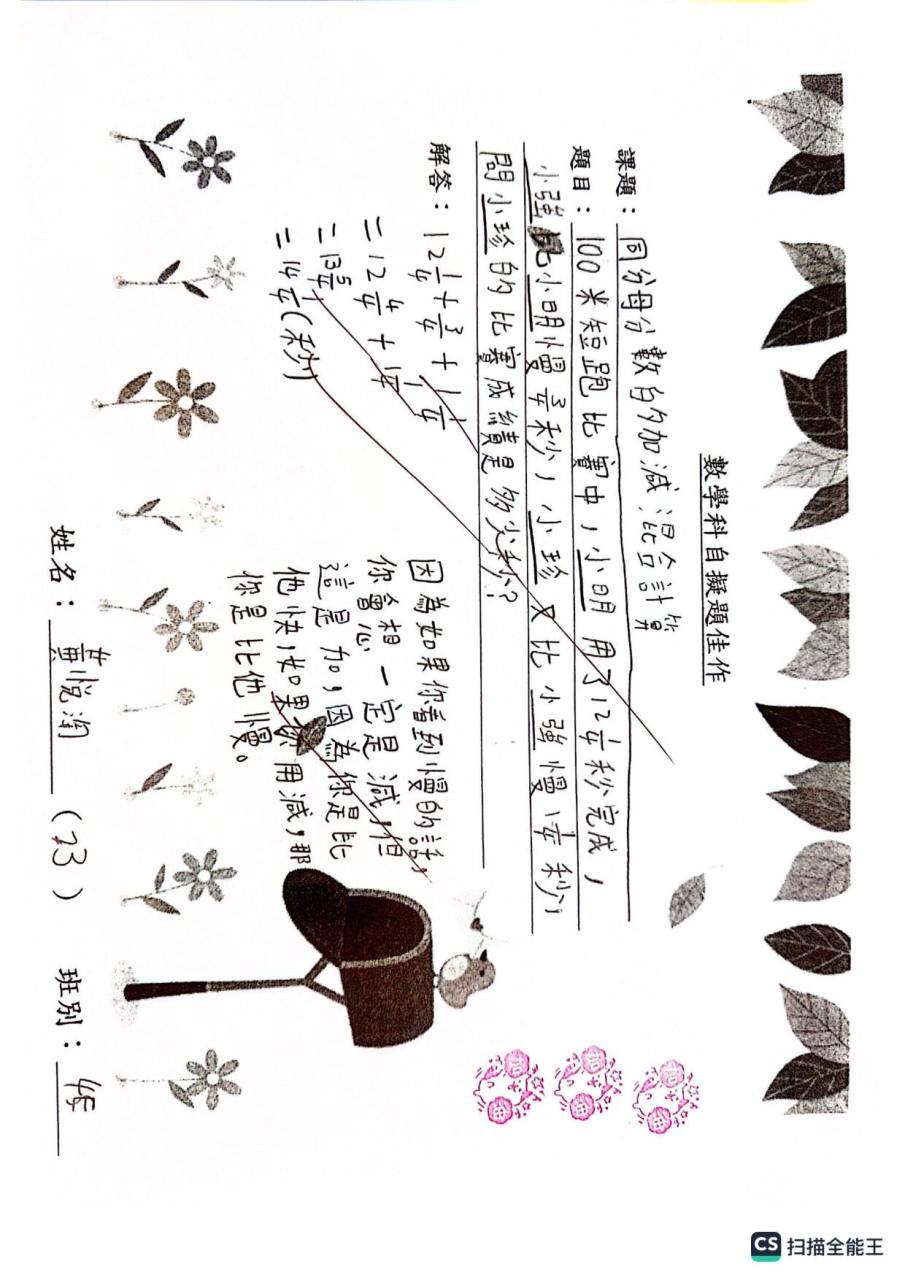 數學科自擬題佳作
課題：同分母分數的加減混合計算
題目：100米短跑比賽中，小明用了12 1/4秒完成，
小強比小明慢 3/4秒，小珍又比小強慢 1 1/4秒，
問小珍的比賽成績是多少秒？
解答：12 1/4 + 3/4 + 1 1/4
= 12 4/4 + 1 1/4
= 13 5/4
= 14 1/4 (秒)
因為如果你看到慢的話，
你會想一定是減，但
這是加，因為你是比
他快，如果你用減，那
你是比他慢。
姓名：黃悅 (23) 班別：
CS 扫描全能王